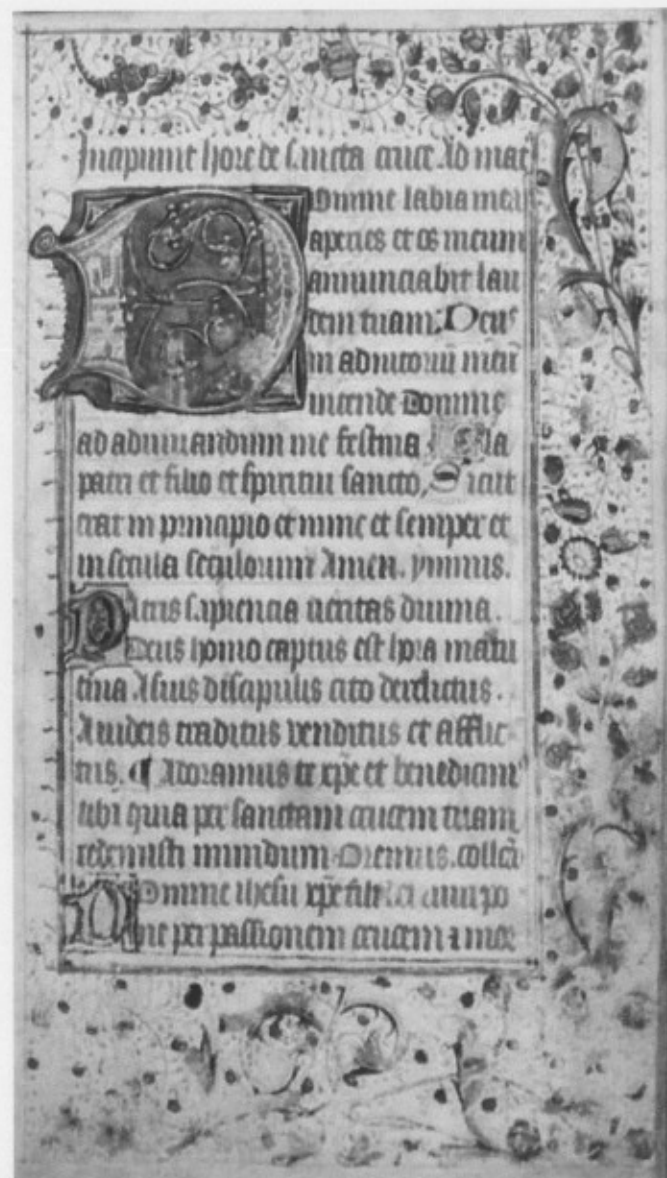 Incipiunt hore de sancta cruce Ad mat
Domine labia mea
aperies et os meum
annunciabit lau
dem tuam. Deus
in adiutoriū meū
intende Domine
ad adiuuandum me festina Gla
patri et filio et spiritui sancto, Sicut
erat in principio et nunc et semper et
in secula seculorum Amen. ymnus.
Patris sapiencia ueritas diuina.
Deus homo captus est hora matu
tina A suis discipulis cito derelictus.
A iudeis traditus venditus et afflic
tus. Adoramus te xp̄e et benedicim᷒
tibi quia per sanctam crucem tuam
redemisti mundum. Oremus. collcā
Domine ihesu xp̄e fili dei uiui po
ne per passionem crucem ⁊ mor